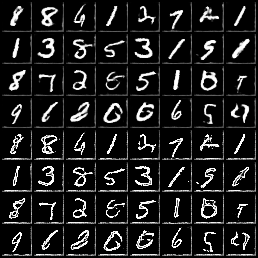 8 8 6 1 2 7 2 1
1 3 8 5 3 1 9 1
8 7 2 5 1
9 6 2 0 0 6 5
8 8 6 1 2 7 2 1
1 3 8 5 3 1 9
8 7 2 5 1
9 6 2 0 0 6 5